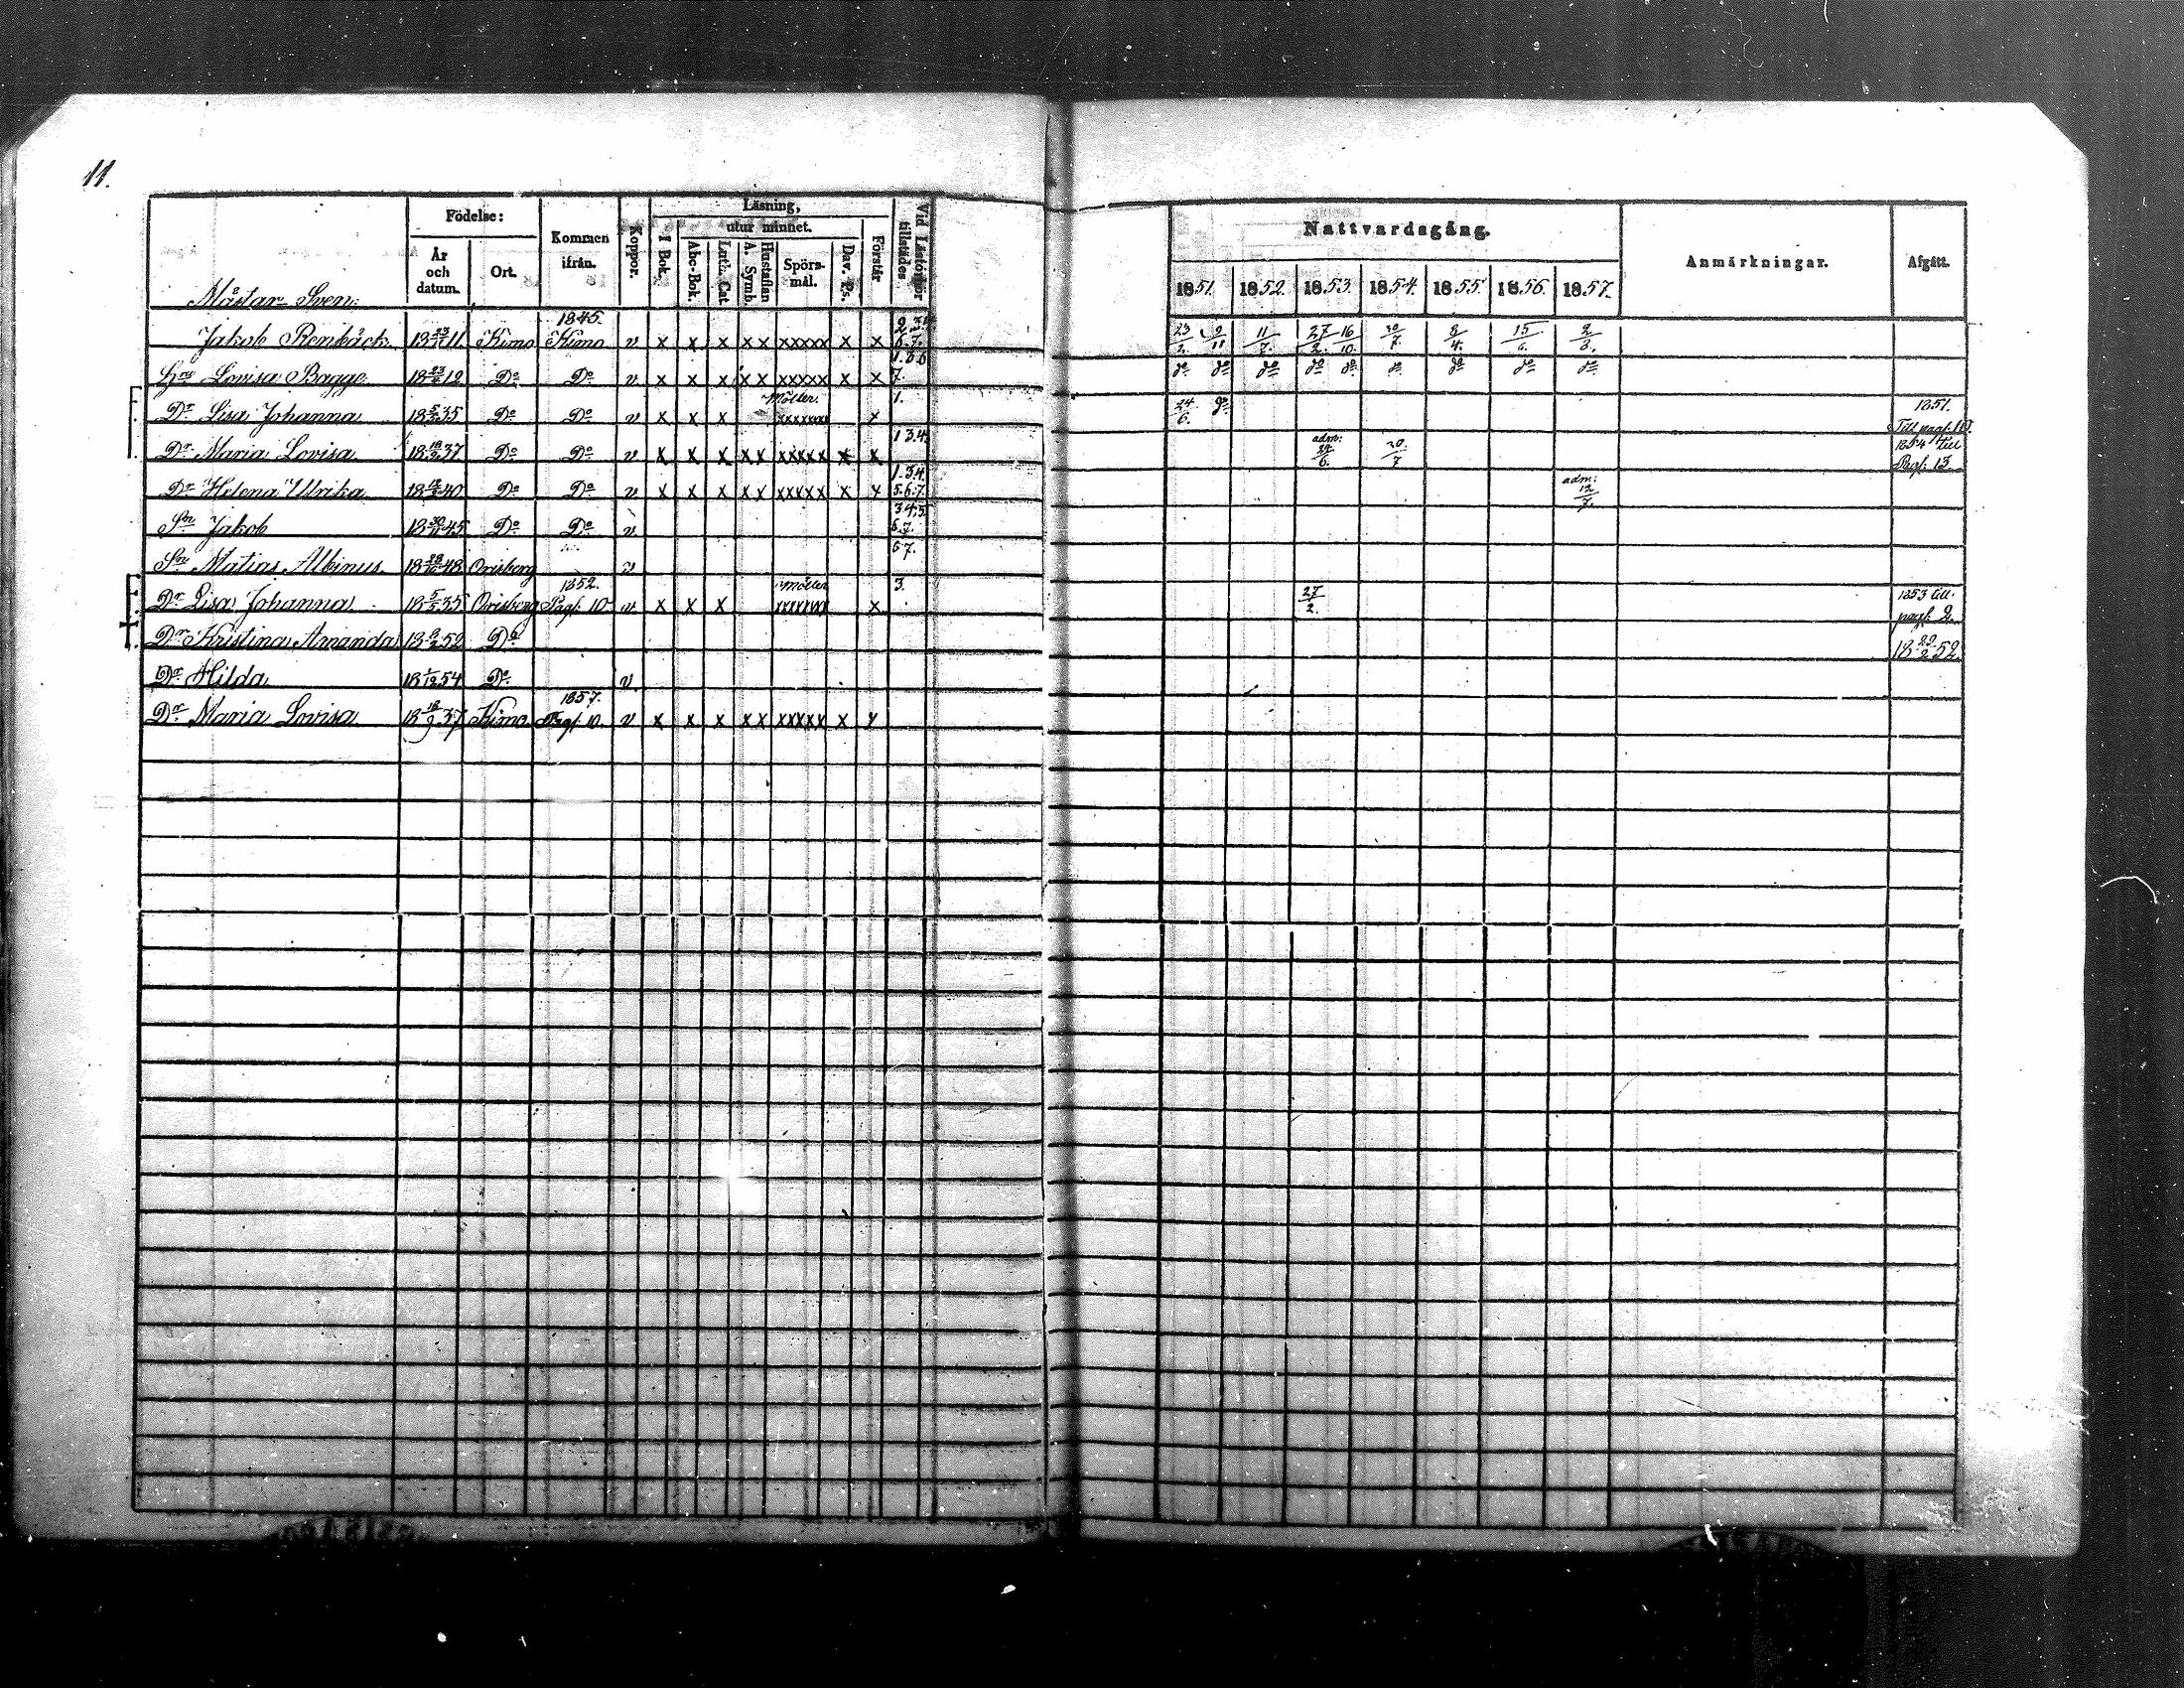 11.
Födelse:
Kommen ifrån.
Koppor.
Läsning,
utur minnet.
Vid Läsförhör tillstädes
År och datum.
Ort.
I Bok.
Abc-Bok.
Luth. Cat.
A. Symb.
Hustaflan
Spörsmål.
Dav. Ps.
Förstår
Nattvardsgång.
Anmärkningar.
Afgått.
1851. 1852. 1853. 1854. 1855. 1856. 1857.
Mästar-Sven:
1845.
Jakob Renbäck 18 11 Kimo Kimo v x x x x x xxxxx x x 23/2. 9/11 11/7. 27/2. 16/10. 30/7. 8/4. 15/6. 2/8.
Hru Lovisa Bagge 18 12 Do Do v x x x x x xxxxx x x 7. do do do do do do do do do
Dr Lisa Johanna 18 5/2 35 Do Do v x x x Möller. xxxxxxx x 1. 24/6. do 1851. Till pag: 10.
Dr Maria Lovisa 18 18/9 37 Do Do v x x x x x xxxxx x x 1 3.4. adm: 24/6. 30/7 1854 till Pag: 13
Dr Helena Ulrika 18 40 Do Do v x x x x x xxxxx x x 1.3.4. 5.6.7. adm: 12/7.
Sn Jakob 18 45 Do Do v 3 4.5 6.7.
Sn Matias Albinus 18 48 Orisberg v 6 7.
Dr Lisa Johanna 18 5/2 35 Orisberg 1852. Pag: 10 v x x x Möller xxxxxxx x 3. 27/2. 1853 till pag: 2.
+ Dr Kristina Amanda 18 9/2 52 Do 18 20/2 52.
Dr Hilda 18 1/12 54 Do v
Dr Maria Lovisa 18 18/9 37 Kimo 1857. Pag: 10. v x x x x x xxxxx x x